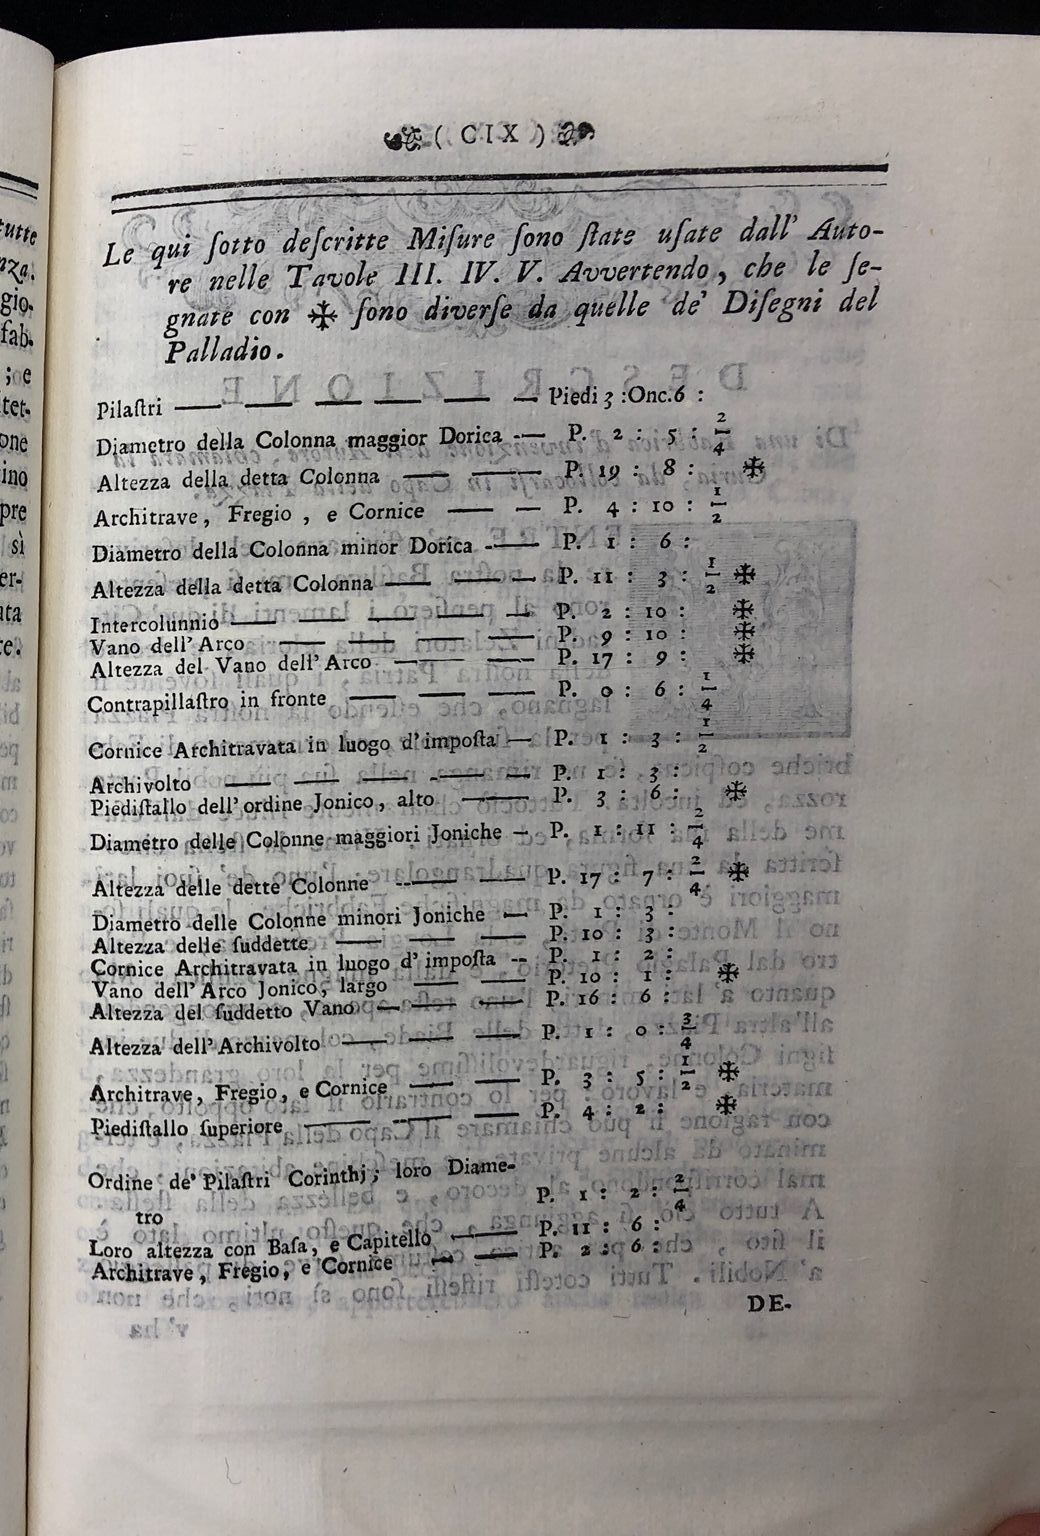 ( CIX )
Le qui ſotto deſcritte Miſure ſono ſtate uſate dall' Auto-
re nelle Tavole III. IV. V. Avvertendo, che le ſe-
gnate con ✠ ſono diverſe da quelle de' Diſegni del
Palladio.
Pilaſtri — — — — — — Piedi 3 : Onc. 6 :
Diametro della Colonna maggior Dorica -— P. 2 : 5 : 2/4
Altezza della detta Colonna — — P. 19 : 8 : ✠
Architrave, Fregio, e Cornice — — P. 4 : 10 : 1/2
Diametro della Colonna minor Dorica -— P. 1 : 6 :
Altezza della detta Colonna — — — P. 11 : 3 : 1/2 ✠
Intercolunnio — — — — — P. 2 : 10 : ✠
Vano dell' Arco — — — — P. 9 : 10 : ✠
Altezza del Vano dell' Arco — — P. 17 : 9 : ✠
Contrapillaſtro in fronte — — — P. 0 : 6 : 1/4
Cornice Architravata in luogo d' impoſta — P. 1 : 3 : 1/2
Archivolto — — — — P. 1 : 3 :
Piediſtallo dell' ordine Jonico, alto — P. 3 : 6 : ✠
Diametro delle Colonne maggiori Joniche — P. 1 : 11 : 2/4
Altezza delle dette Colonne -— — P. 17 : 7 : 2/4 ✠
Diametro delle Colonne minori Joniche — P. 1 : 3 :
Altezza delle ſuddette — — — P. 10 : 3 :
Cornice Architravata in luogo d' impoſta -- P. 1 : 2 :
Vano dell' Arco Jonico, largo — — P. 10 : 1 : ✠
Altezza del ſuddetto Vano — — — P. 16 : 6 :
Altezza dell' Archivolto — — — P. 1 : 0 : 3/4
Architrave, Fregio, e Cornice — — P. 3 : 5 : 1/2 ✠
Piediſtallo ſuperiore — — — P. 4 : 2 : ✠
Ordine de' Pilaſtri Corinthj; loro Diame-
tro P. 1 : 2 : 2/4
Loro altezza con Baſa, e Capitello — P. 11 : 6 :
Architrave, Fregio, e Cornice — — P. 2 : 6 :
DE-